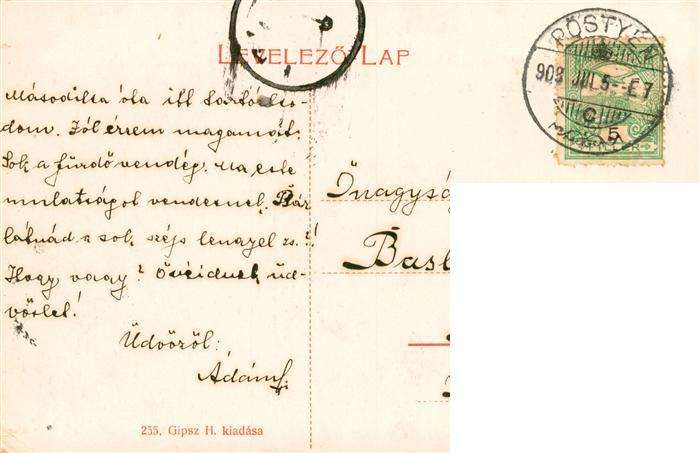 LEVELEZŐ LAP
PÖSTYÉN
908 JUL 5 - E 7
C
5
Másodika óta itt tartózko-
dom. Jól érzem magamat.
Sok a fürdővendég. Ma este
mulatságot rendeznek. Bár
látnád a sok szép lengyel
Hogy vagy? Övéidnek üd-
vözlet!
Üdvözöl:
Ádám
Önagysá
Basl
255. Gipsz H. kiadása